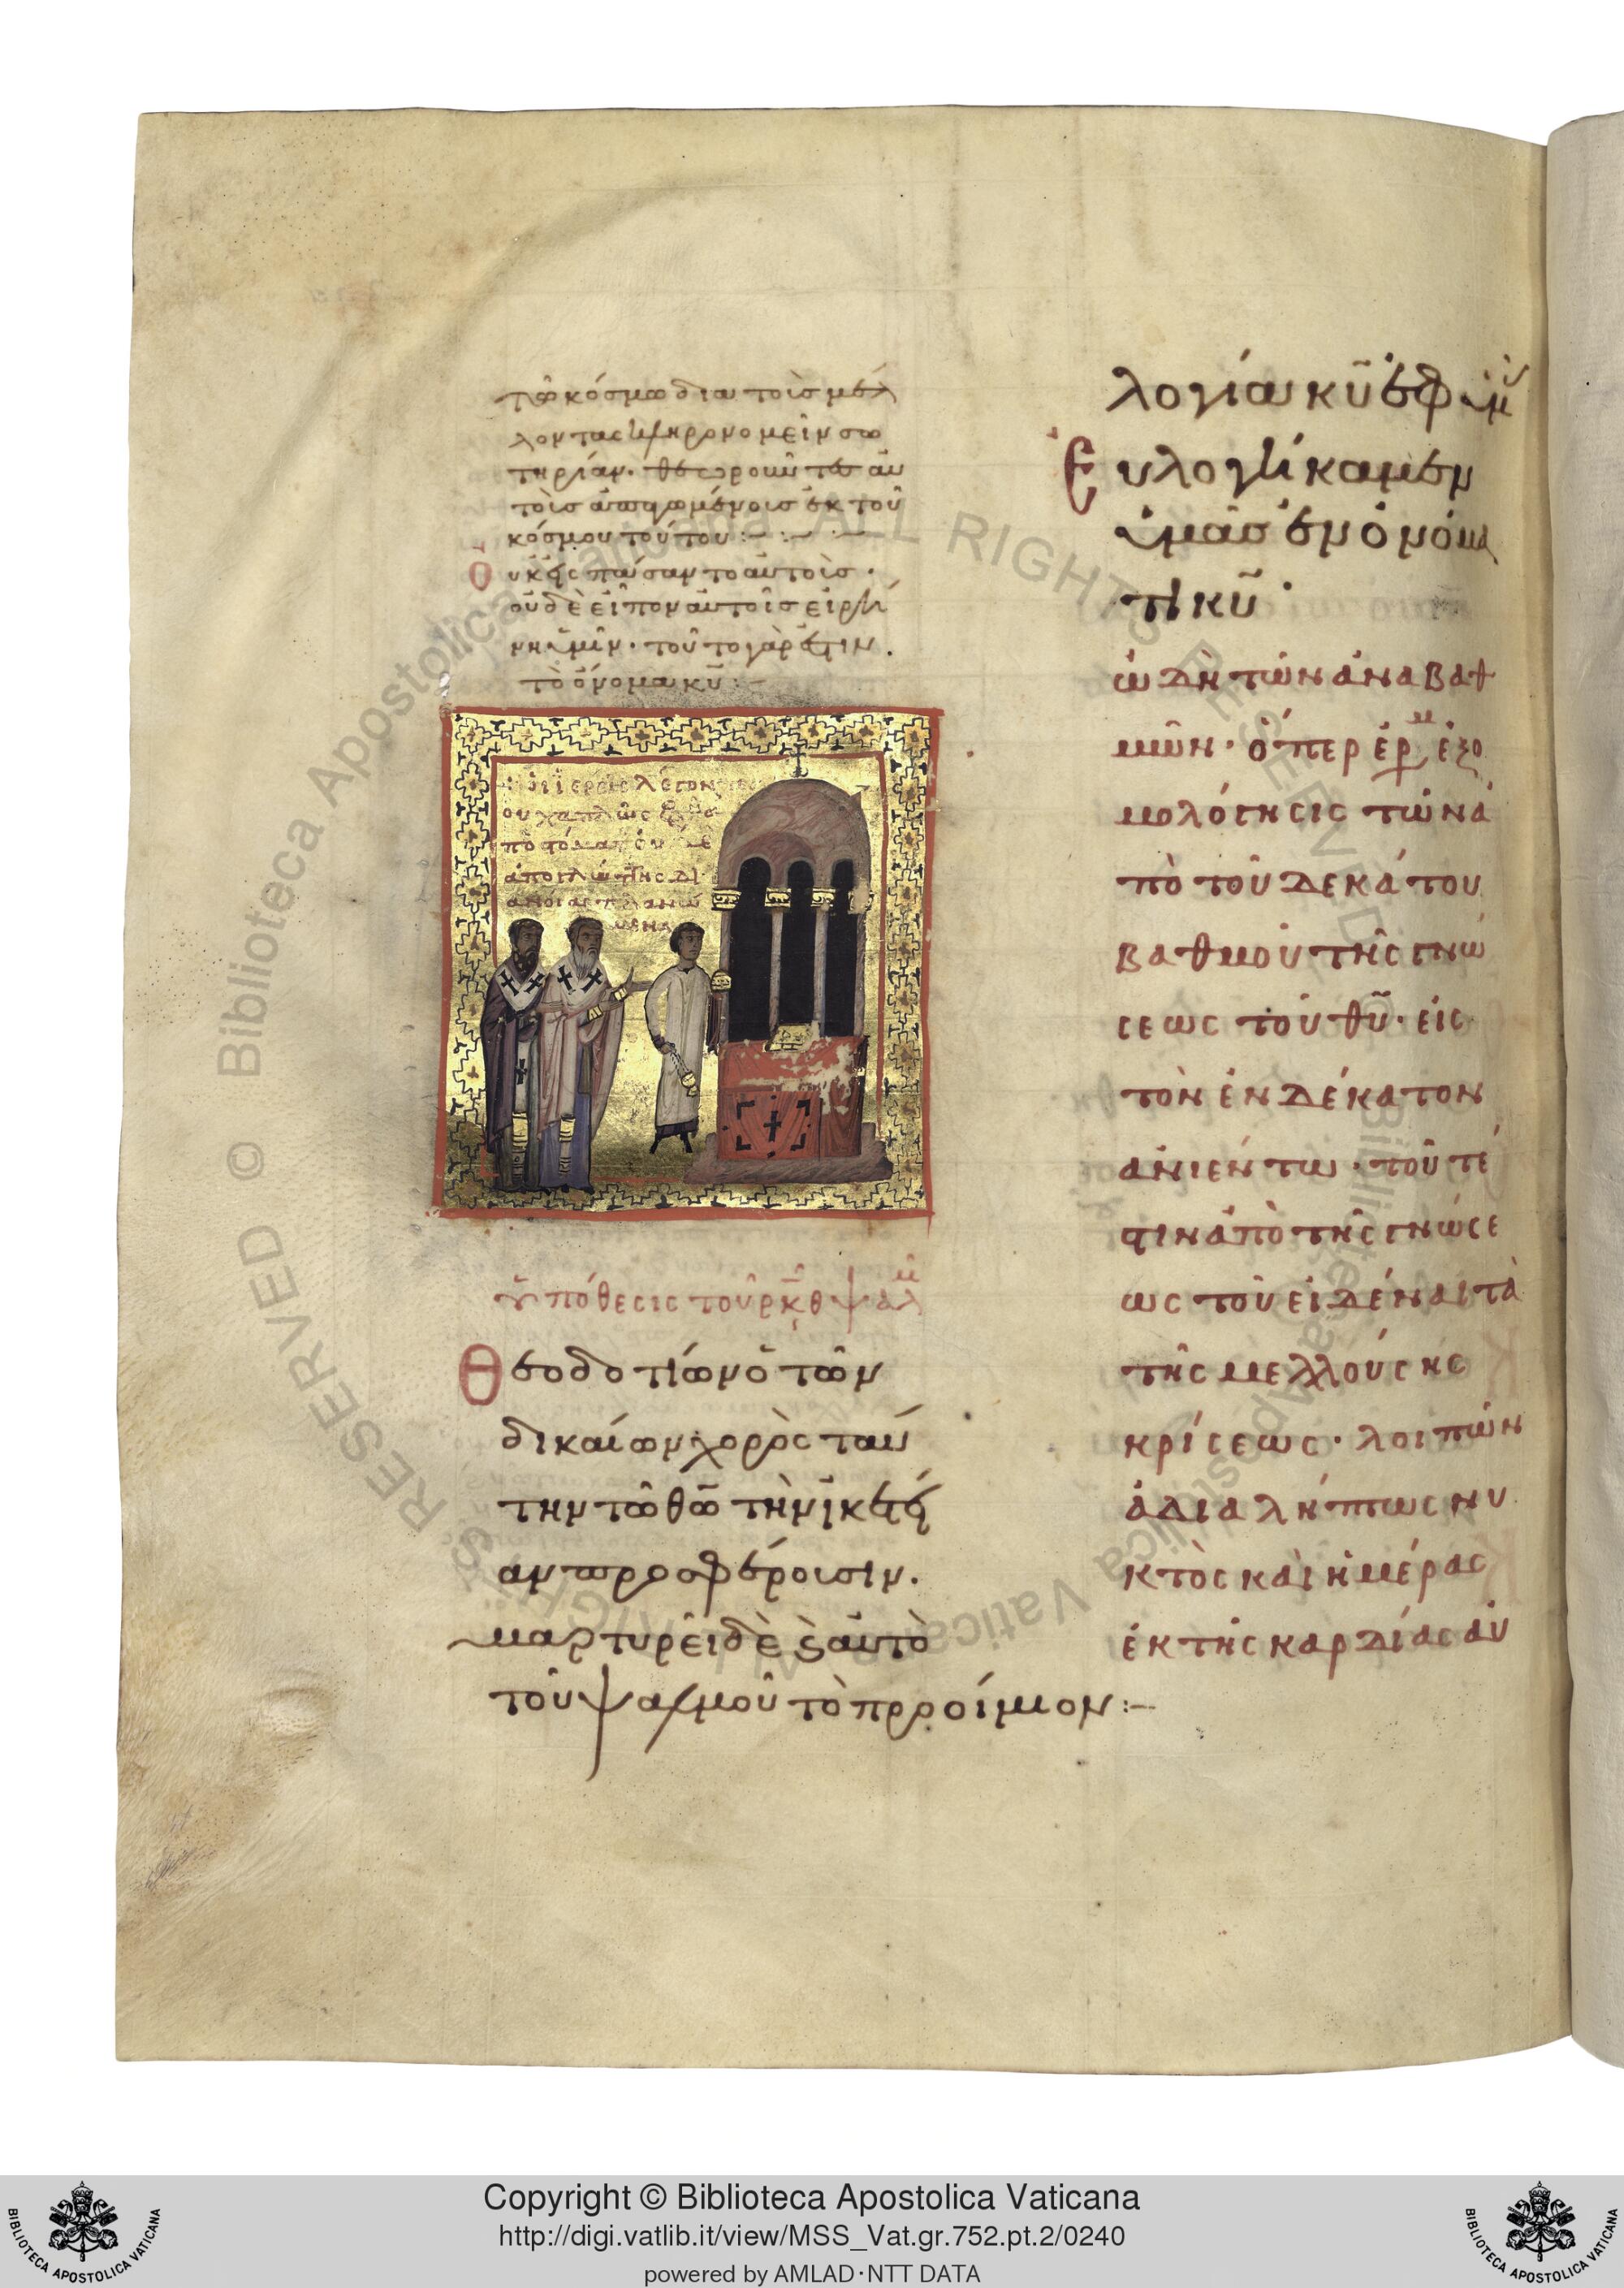 τῶ κόσμω δια τοῖς μέλ
λοντας κληρονομεῖν σω
τηρίαν. θεωροῦνται αυ
τοῖς ἀπηρμένοις ἐκ τοῦ
κόσμου τούτου :—
Οὐκ ἐς παύσαντο αὐτοῖς .
οὐδὲ εἶπον αὐτοῖς εἰρή
νη ὑμῖν . τοῦτο γάρ ἐστιν .
τὸ ὄνομα κυ̅ :—
οἱ ἱερεῖς λέγον
ἀπὸ
ὑπόθεσις τοῦ ρκθ ψαλμ
Θεοδοτίων ὁ τῶν
δικαίων χορὸς ταύ
την τῶ θω̅ τὴν ἱκεσί
αν προσφέρουσιν.
μαρτυρεῖ δὲ ϗ αὐτὸ
τοῦ ψαλμοῦ τὸ προοίμιον :—
λογία κυ̅ ἐφ ὑμ
Ευλογήκαμεν
ὑμᾶς ἐν ὀνόμα
τι κυ̅ ·
ὠδὴ τῶν ἀναβαθ
μῶν · ὅπερ ἑρμ ἐξο
μολόγησις τῶν ἀ
πὸ τοῦ δεκάτου
βαθμοῦ τῆς γνώ
σεως τοῦ θυ̅ · εἰς
τὸν ἑνδέκατον
ἀνιέντω · τοῦτέ
στιν ἀπὸ τῆς γνώσε
ως τοῦ εἰδέναι τὰ
τῆς μελλούσης
κρίσεως · λοιπῶν
ἀδιαλήπτως νυ
κτὸς καὶ ἡμέρας
ἐκ τῆς καρδίας αὐ
Copyright © Biblioteca Apostolica Vaticana
http://digi.vatlib.it/view/MSS_Vat.gr.752.pt.2/0240
powered by AMLAD·NTT DATA
BIBLIOTECA APOSTOLICA VATICANA
BIBLIOTECA APOSTOLICA VATICANA